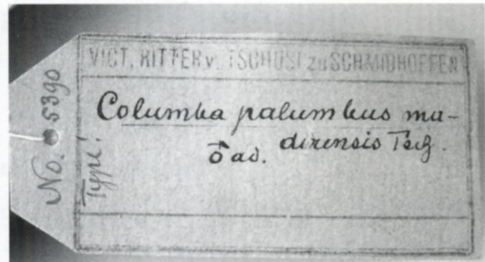 No. 5390
Type!
VICT. RITTER v. TSCHUSI zu SCHMIDHOFFEN
Columba palumbus ma-
♂ ad. dirensis Tsch.